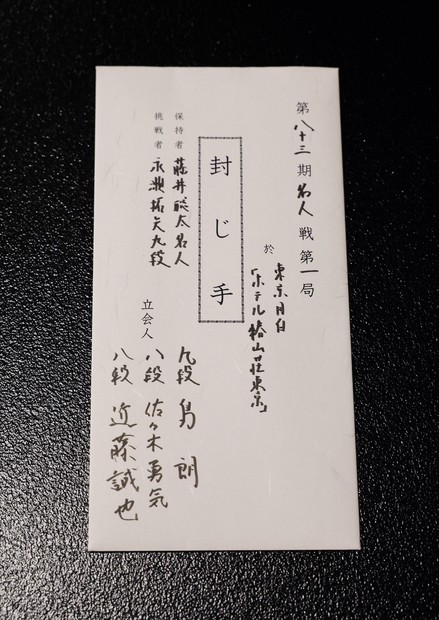 第八十三期名人戦第一局
於 東京目白
「ホテル椿山荘東京」
封じ手
保持者 藤井聡太名人
挑戦者 永瀬拓矢九段
立会人
九段 島 朗
八段 佐々木勇気
八段 近藤誠也